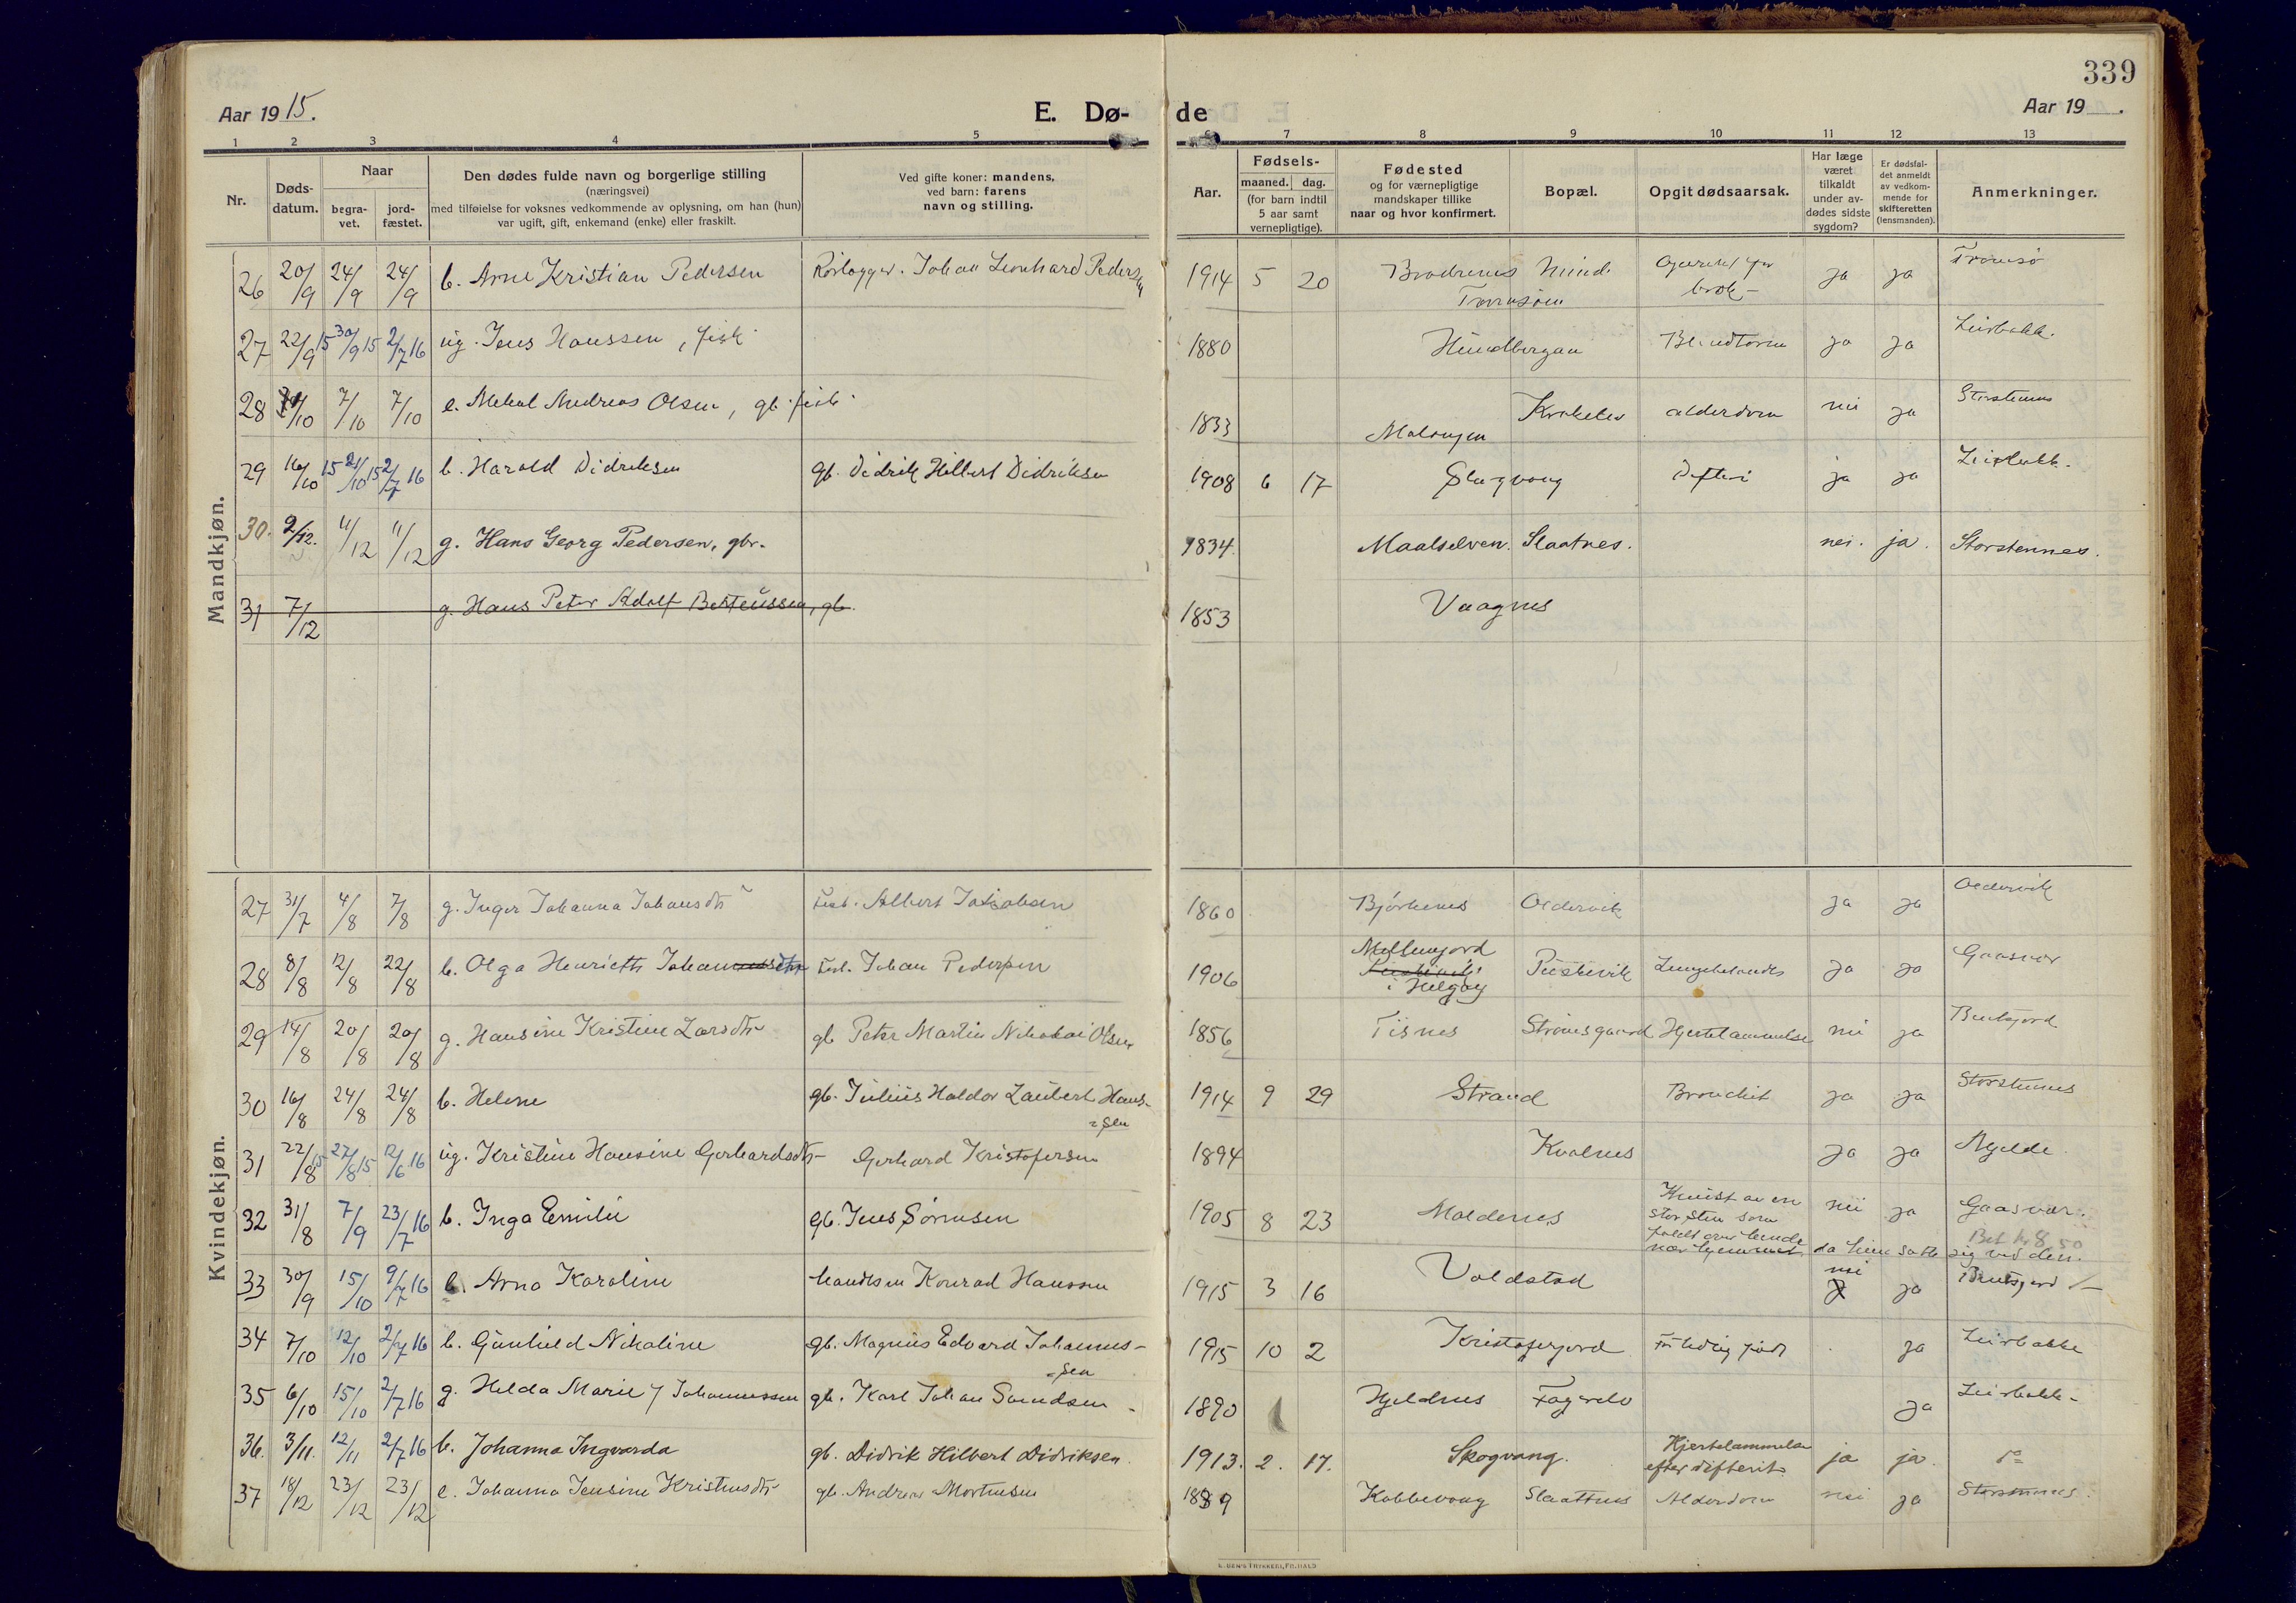 339
Aar 1915.
E. Dø-
de
Aar 19 .
1 2 3 4 5 6 7 8 9 10 11 12 13
Nr.
Døds-
datum.
Naar
begra-
vet.
jord-
fæstet.
Den dødes fulde navn og borgerlige stilling
(næringsvei)
med tilføielse for voksnes vedkommende av oplysning, om han (hun)
var ugift, gift, enkemand (enke) eller fraskilt.
Ved gifte koner: mandens,
ved barn: farens
navn og stilling.
Aar.
Fødsels-
maaned. dag.
(for barn indtil
5 aar samt
vernepligtige).
Fødested
og for værnepligtige
mandskaper tillike
naar og hvor konfirmert.
Bopæl.
Opgit dødsaarsak.
Har læge
været
tilkaldt
under av-
dødes sidste
sygdom?
Er dødsfal-
det anmeldt
av vedkom-
mende for
skifteretten
(lensmanden).
Anmerkninger.
Mandkjøn.
26 20/9 24/9 24/9 b. Arne Kristian Pedersen Johan Leonhard Pedersen 1914 5 20 ja ja Tromsø
27 22/9 15 30/9 15 2/7 16 ug. Jens Hanssen, fisk 1880 ja ja Leirbakk.
28 /10 7/10 7/10 e. Mekal Andreas Olsen, gb. fisk 1833 Malangen alderdom nei ja Storstennes
29 16/10 15 21/10 15 2/7 16 b. Harold Didriksen gb. Didrik Hilbert Didriksen 1908 6 17 Skogvang Difteri ja ja Leirbakk.
30. 9/12. 11/12 11/12 g. Hans Georg Pedersen, gbr. 1834. Maalselven. Slaatnes. nei. ja. Storstennes.
31 7/12 g. Hans Peter Adolf Berteussen, gb. 1853 Vaagnes
Kvindekjøn.
27 31/7 4/8 7/8 g. Inger Johanna Johansdtr Fisk. Albert Jakobsen 1860 Bjørknes Oldervik ja ja Oldervik
28 8/8 12/8 22/8 b. Olga Henriette Johannesdtr Fisk. Johan Pedersen 1906 Mellemjord
i Helgøy ja ja Gaasvær
29 14/8 20/8 20/8 g. Hansine Kristine Larsdtr gb Peter Martin Nikolai Olsen 1856 Tisnes Strømsgaard Hjertelammelse nei ja Bentsjord
30 16/8 24/8 24/8 b. Helene gb. Julius Haldor Laubert Hans-
sen 1914 9 29 Strand Bronchit ja ja Storstennes
31 22/8 15 27/8 15 12/6 16 ug. Kristine Hansine Gerhardsdtr Gerhard Kristofersen 1894 Kvalnes ja ja Mjelde
32 31/8 7/9 23/7 16 b. Inga Emilie gb. Jens Sørensen 1905 8 23 Maldenes Knust av en
stor sten som
faldt over hende
nær hjemmet da hun satte sig ved den. nei ja Gaasvær.
Bet kr 8,50
33 30/9 15/10 9/7 16 b. Arna Karoline handlsm Konrad Hanssen 1915 3 16 Voldstad nei ja Bentsjord
34 7/10 12/10 2/7 16 b. Gunhild Nikoline gb. Magnus Edvard Johannes-
sen 1915 10 2 Kristoferjord For tidlig født ja Leirbakke
35 6/10 15/10 2/7 16 g. Helda Marie f Johannessen gb. Karl Johan Svendsen 1890 Hjeldnes Fagrelv ja Leirbakk
36. 3/11. 12/11 2/7 16 b. Johanna Ingvarda gb. Didrik Hilbert Didriksen. 1913. 2. 17. Skogvang. Hjertelammelse
efter difterit ja ja. do
37 18/12 23/12 23/12 e. Johanna Jensine Kristensdtr gb. Andreas Mortensen Kobbevaag Slaattnes Alderdom nei ja Storstennes.